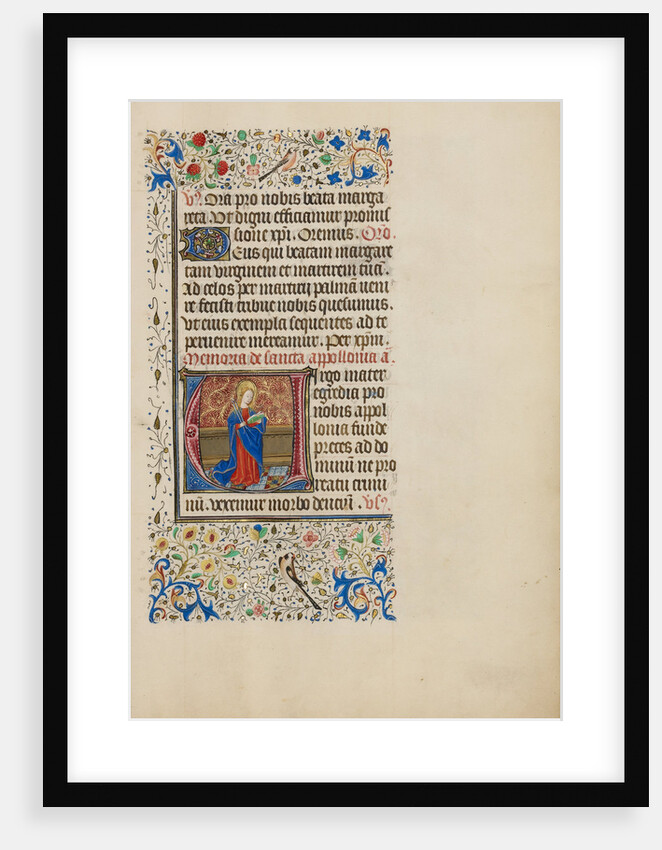 V⁊ Ora pro nobis beata marga
reta. Ut digni efficiamur promis
sione xp̄i. Oremus. Oro.
Deus qui beatam margare
tam virginem et martirem tuā.
Ad celos per martirij palmā veni
re fecisti tribue nobis quesumus.
Ut eius exempla sequentes ad te
peruenire mereamur. Per xp̄m.
Memoria de sancta appollonia a᷉.
Virgo mater
egredia pro
nobis appol
lonia funde
preces ad do
minū ne pro
reatu crimi
nū. vexemur morbo denciū. Vs⁊